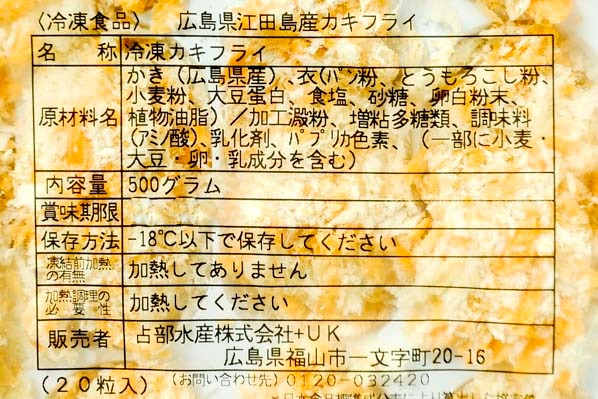 〈冷凍食品〉 広島県江田島産カキフライ
名称 冷凍カキフライ
原材料名 かき(広島県産)、衣(パン粉、とうもろこし粉、
小麦粉、大豆蛋白、食塩、砂糖、卵白粉末、
植物油脂)/加工澱粉、増粘多糖類、調味料
(アミノ酸)、乳化剤、パプリカ色素、(一部に小麦・
大豆・卵・乳成分を含む)
内容量 500グラム
賞味期限
保存方法 -18℃以下で保存してください
凍結前加熱の有無 加熱してありません
加熱調理の必要性 加熱してください
販売者 占部水産株式会社+UK
広島県福山市一文字町20-16
(20粒入) (お問い合わせ先)0120-032420